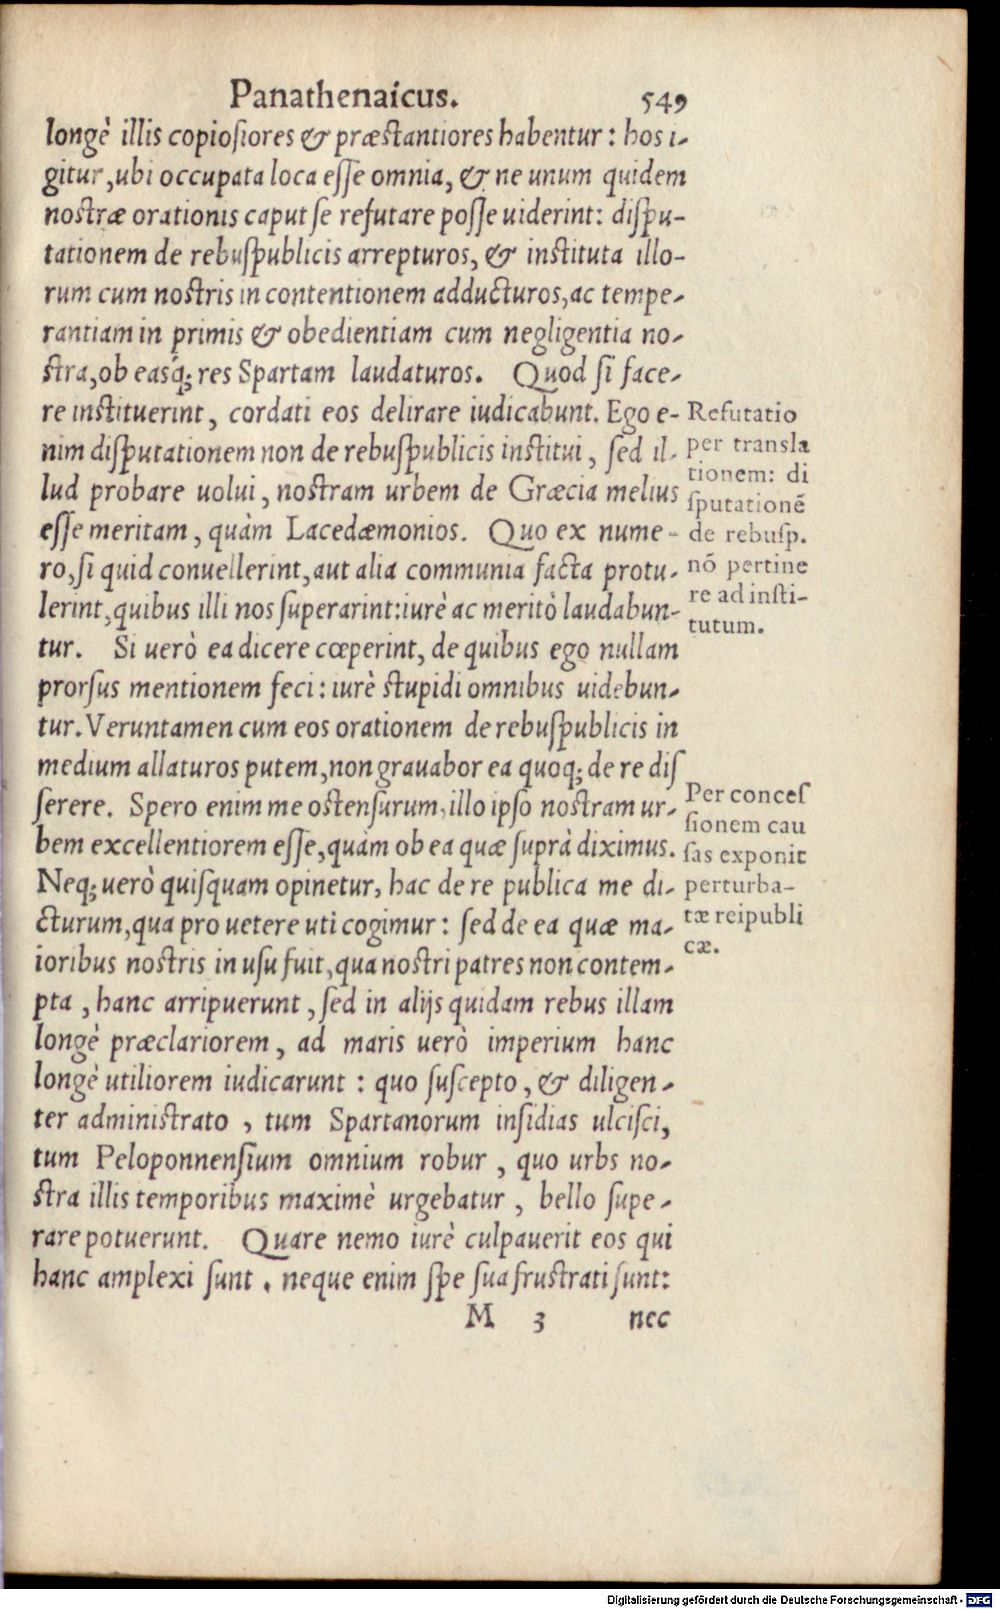 Panathenaicus. 549
longè illis copiosiores & præstantiores habentur: hos i-
gitur, ubi occupata loca esse omnia, & ne unum quidem
nostræ orationis caput se refutare posse uiderint: dispu-
tationem de rebuspublicis arrepturos, & instituta illo-
rum cum nostris in contentionem adducturos, ac tempe-
rantiam in primis & obedientiam cum negligentia no-
stra, ob easq́; res Spartam laudaturos. Quod si face-
re instituerint, cordati eos delirare iudicabunt. Ego e-
nim disputationem non de rebuspublicis institui, sed il-
lud probare uolui, nostram urbem de Græcia melius
esse meritam, quàm Lacedæmonios. Quo ex nume-
ro, si quid conuellerint, aut alia communia facta protu-
lerint, quibus illi nos superarint: iurè ac meritò laudabun-
tur. Si uerò ea dicere cœperint, de quibus ego nullam
prorsus mentionem feci: iurè stupidi omnibus uidebun-
tur. Veruntamen cum eos orationem de rebuspublicis in
medium allaturos putem, non grauabor ea quoq; de re dis
serere. Spero enim me ostensurum, illo ipso nostram ur-
bem excellentiorem esse, quàm ob ea quæ suprà diximus.
Neq; uerò quisquam opinetur, hac de re publica me di-
cturum, qua pro uetere uti cogimur: sed de ea quæ ma-
ioribus nostris in usu fuit, qua nostri patres non contem-
pta, hanc arripuerunt, sed in alijs quidam rebus illam
longè præclariorem, ad maris uerò imperium hanc
longè utiliorem iudicarunt: quo suscepto, & diligen-
ter administrato, tum Spartanorum insidias ulcisci,
tum Peloponnensium omnium robur, quo urbs no-
stra illis temporibus maximè urgebatur, bello supe-
rare potuerunt. Quare nemo iurè culpauerit eos qui
hanc amplexi sunt. neque enim spe sua frustrati sunt:
M 3 nec
Refutatio
per transla
tionem: di
sputationē
de rebusp.
nō pertine
re ad insti-
tutum.
Per conces
sionem cau
sas exponit
perturba-
tæ reipubli
cæ.
Digitalisierung gefördert durch die Deutsche Forschungsgemeinschaft - DFG